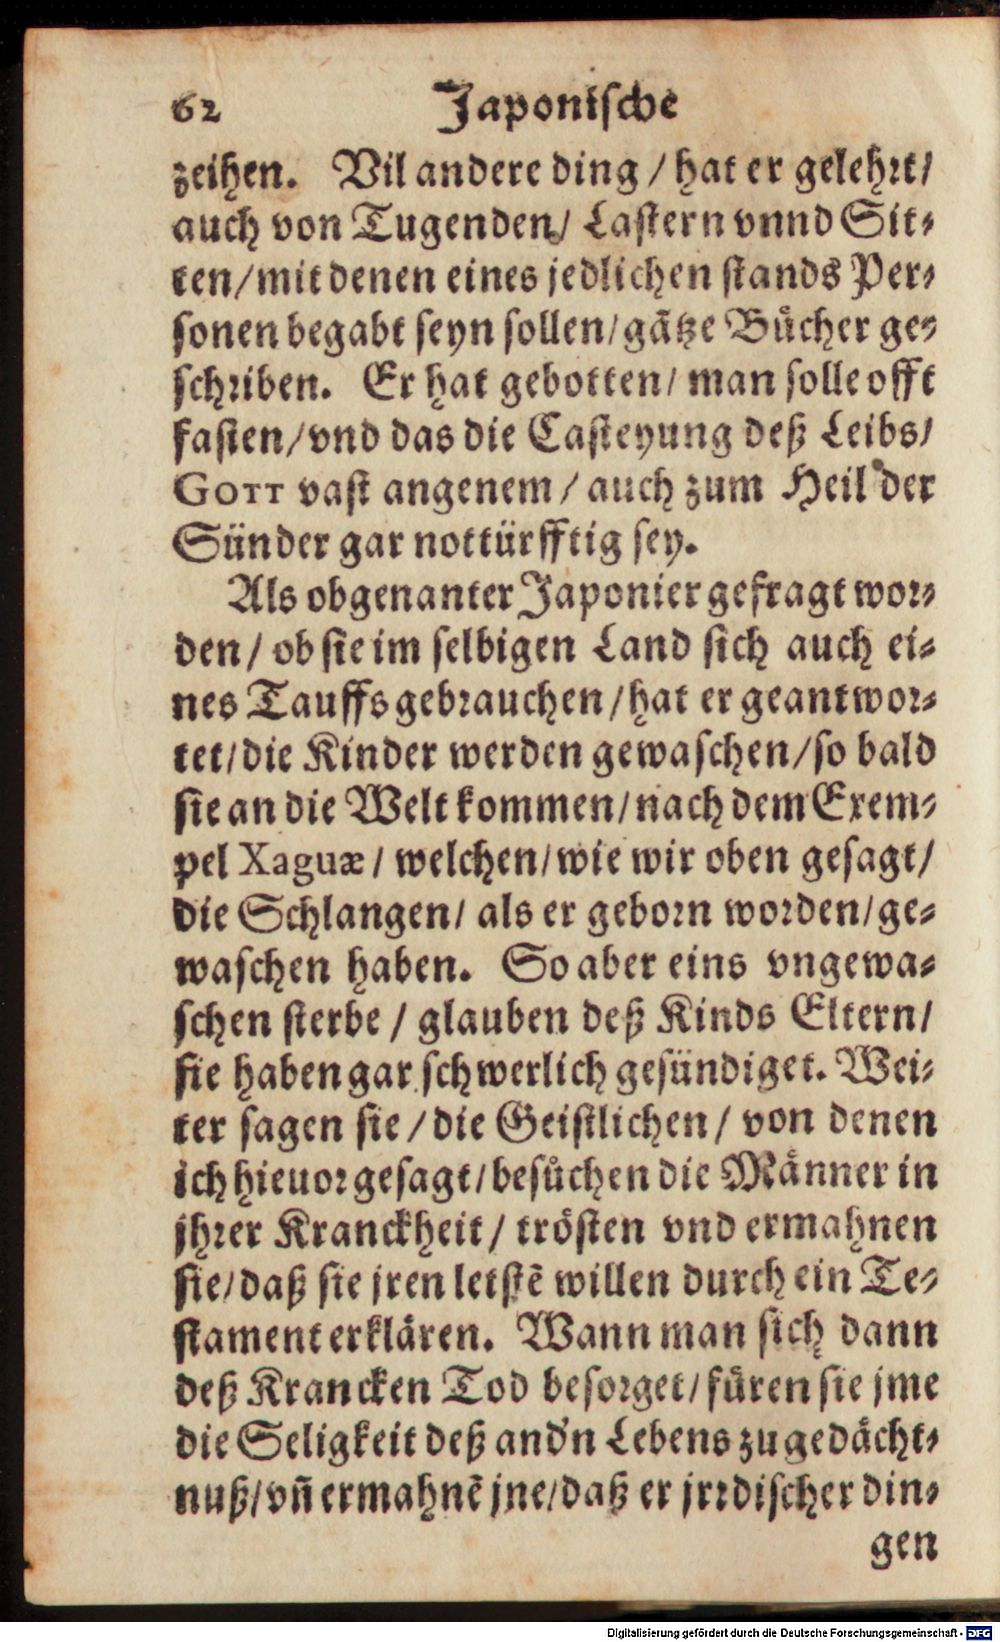 62 Japonische
zeihen. Vil andere ding / hat er gelehrt/
auch von Tugenden/ Lastern vnnd Sit-
ten/mit denen eines jedlichen stands Per-
sonen begabt seyn sollen/gātze Bůcher ge-
schriben. Er hat gebotten/ man solle offt
fasten/vnd das die Casteyung deß Leibs/
GOTT vast angenem / auch zum Heil der
Sünder gar nottürfftig sey.
Als obgenanter Japonier gefragt wor-
den/ ob sie im selbigen Land sich auch ei-
nes Tauffs gebrauchen/hat er geantwor-
tet/die Kinder werden gewaschen/so bald
sie an die Welt kommen/nach dem Exem-
pel Xaguæ/ welchen/wie wir oben gesagt/
die Schlangen/ als er geborn worden/ge-
waschen haben. So aber eins vngewa-
schen sterbe / glauben deß Kinds Eltern/
sie haben gar schwerlich gesündiget. Wei-
ter sagen sie / die Geistlichen / von denen
ich hieuor gesagt/besůchen die Männer in
jhrer Kranckheit / trösten vnd ermahnen
sie/daß sie jren letstē willen durch ein Te-
stament erklären. Wann man sich dann
deß Krancken Tod besorget/füren sie jme
die Seligkeit deß and'n Lebens zu gedächt-
nuß/vñ ermahnē jne/daß er jrrdischer din-
gen
Digitalisierung gefördert durch die Deutsche Forschungsgemeinschaft - DFG